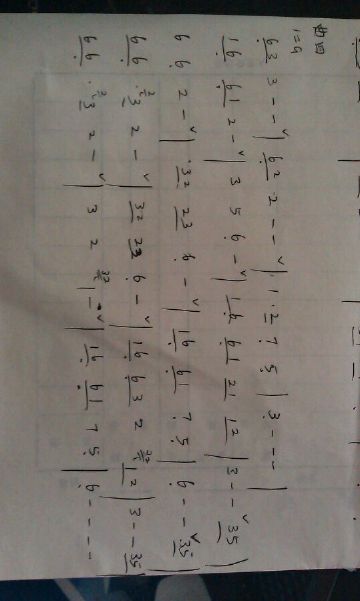 1=G
63 3 - - ˇ| 62 2 - - ˇ| 1·2 7 5 | 3 - - - |
16 61 2 - ˇ| 3 5 6 - ˇ| 16 61 21 12 | 3 - - ˇ35 |
6 6 2 - ˇ| ·32 23 6 - ˇ| 16 61 7 5 | 6 - - ˇ35 |
66 ·3 2 - ˇ| 32 23 6 - ˇ| 16 63 2 12 | 3 - - 35 |
66 ·3 2 - ˇ| 3 2 1 - ˇ| 16 61 7 5 | 6 - - - -